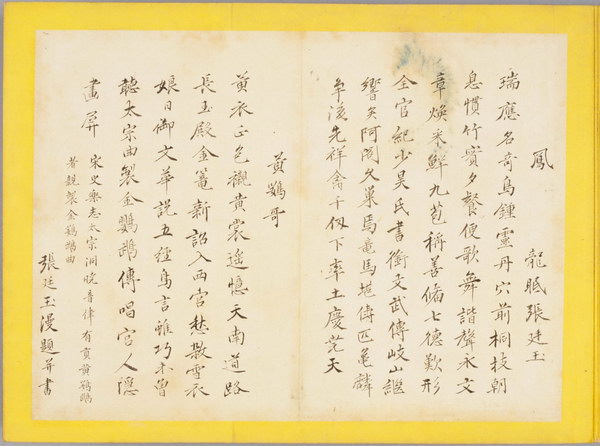 鳳
龍眠張廷玉
瑞應名奇鳥鍾靈丹穴前桐枝朝
息慣竹實夕餐便歌舞諧聲永文
章煥采鮮九苞稱善備七德歎形
全官紀少昊氏書銜文武傳岐山繼
響矣阿閣久巢焉龍馬堪傳匹龜麟
爭後先祥禽千仞下率土慶堯天
黃鸚哥
黃衣正色襯黃裳遙憶天南道路
長玉殿金籠新詔入西宮愁殺雪衣
娘日御文華説五經鳥言雖巧不曾
聽太宗曲製金鸚鵡傳唱宮人隱
畫屏
宋史樂志太宗洞曉音律有貢黃鸚鵡
者親製金鸚鵡曲
張廷玉漫題并書